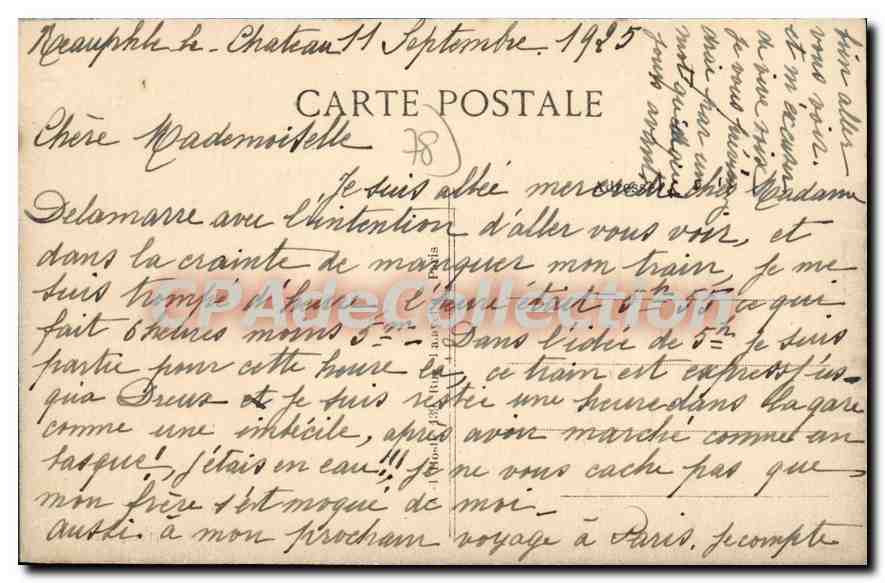 Neauphle le - Chateau 11 Septembre. 1925
CARTE POSTALE
78
Chère Mademoiselle
Je suis allée mercredi chez Madame
Delamarre avec l'intention d'aller vous voir, et
dans la crainte de manquer mon train, je me
suis trompé d'heure l'heure était 5h 55 ce qui
fait 6 heures moins 5m. Dans l'idée de 5h je suis
partie pour cette heure là, ce train est express jus-
qu'à Dreux et je suis restée une heure dans la gare
comme une imbécile, après avoir marché comme un
basque, j'étais en eau!!! je ne vous cache pas que
mon frère s'est moqué de moi.
aussi à mon prochain voyage à Paris, je compte
bien aller
vous voir.
et m'excuser
de vive voix
je vous
drai par un
mot quelques
jours avant
CPAdeCollection